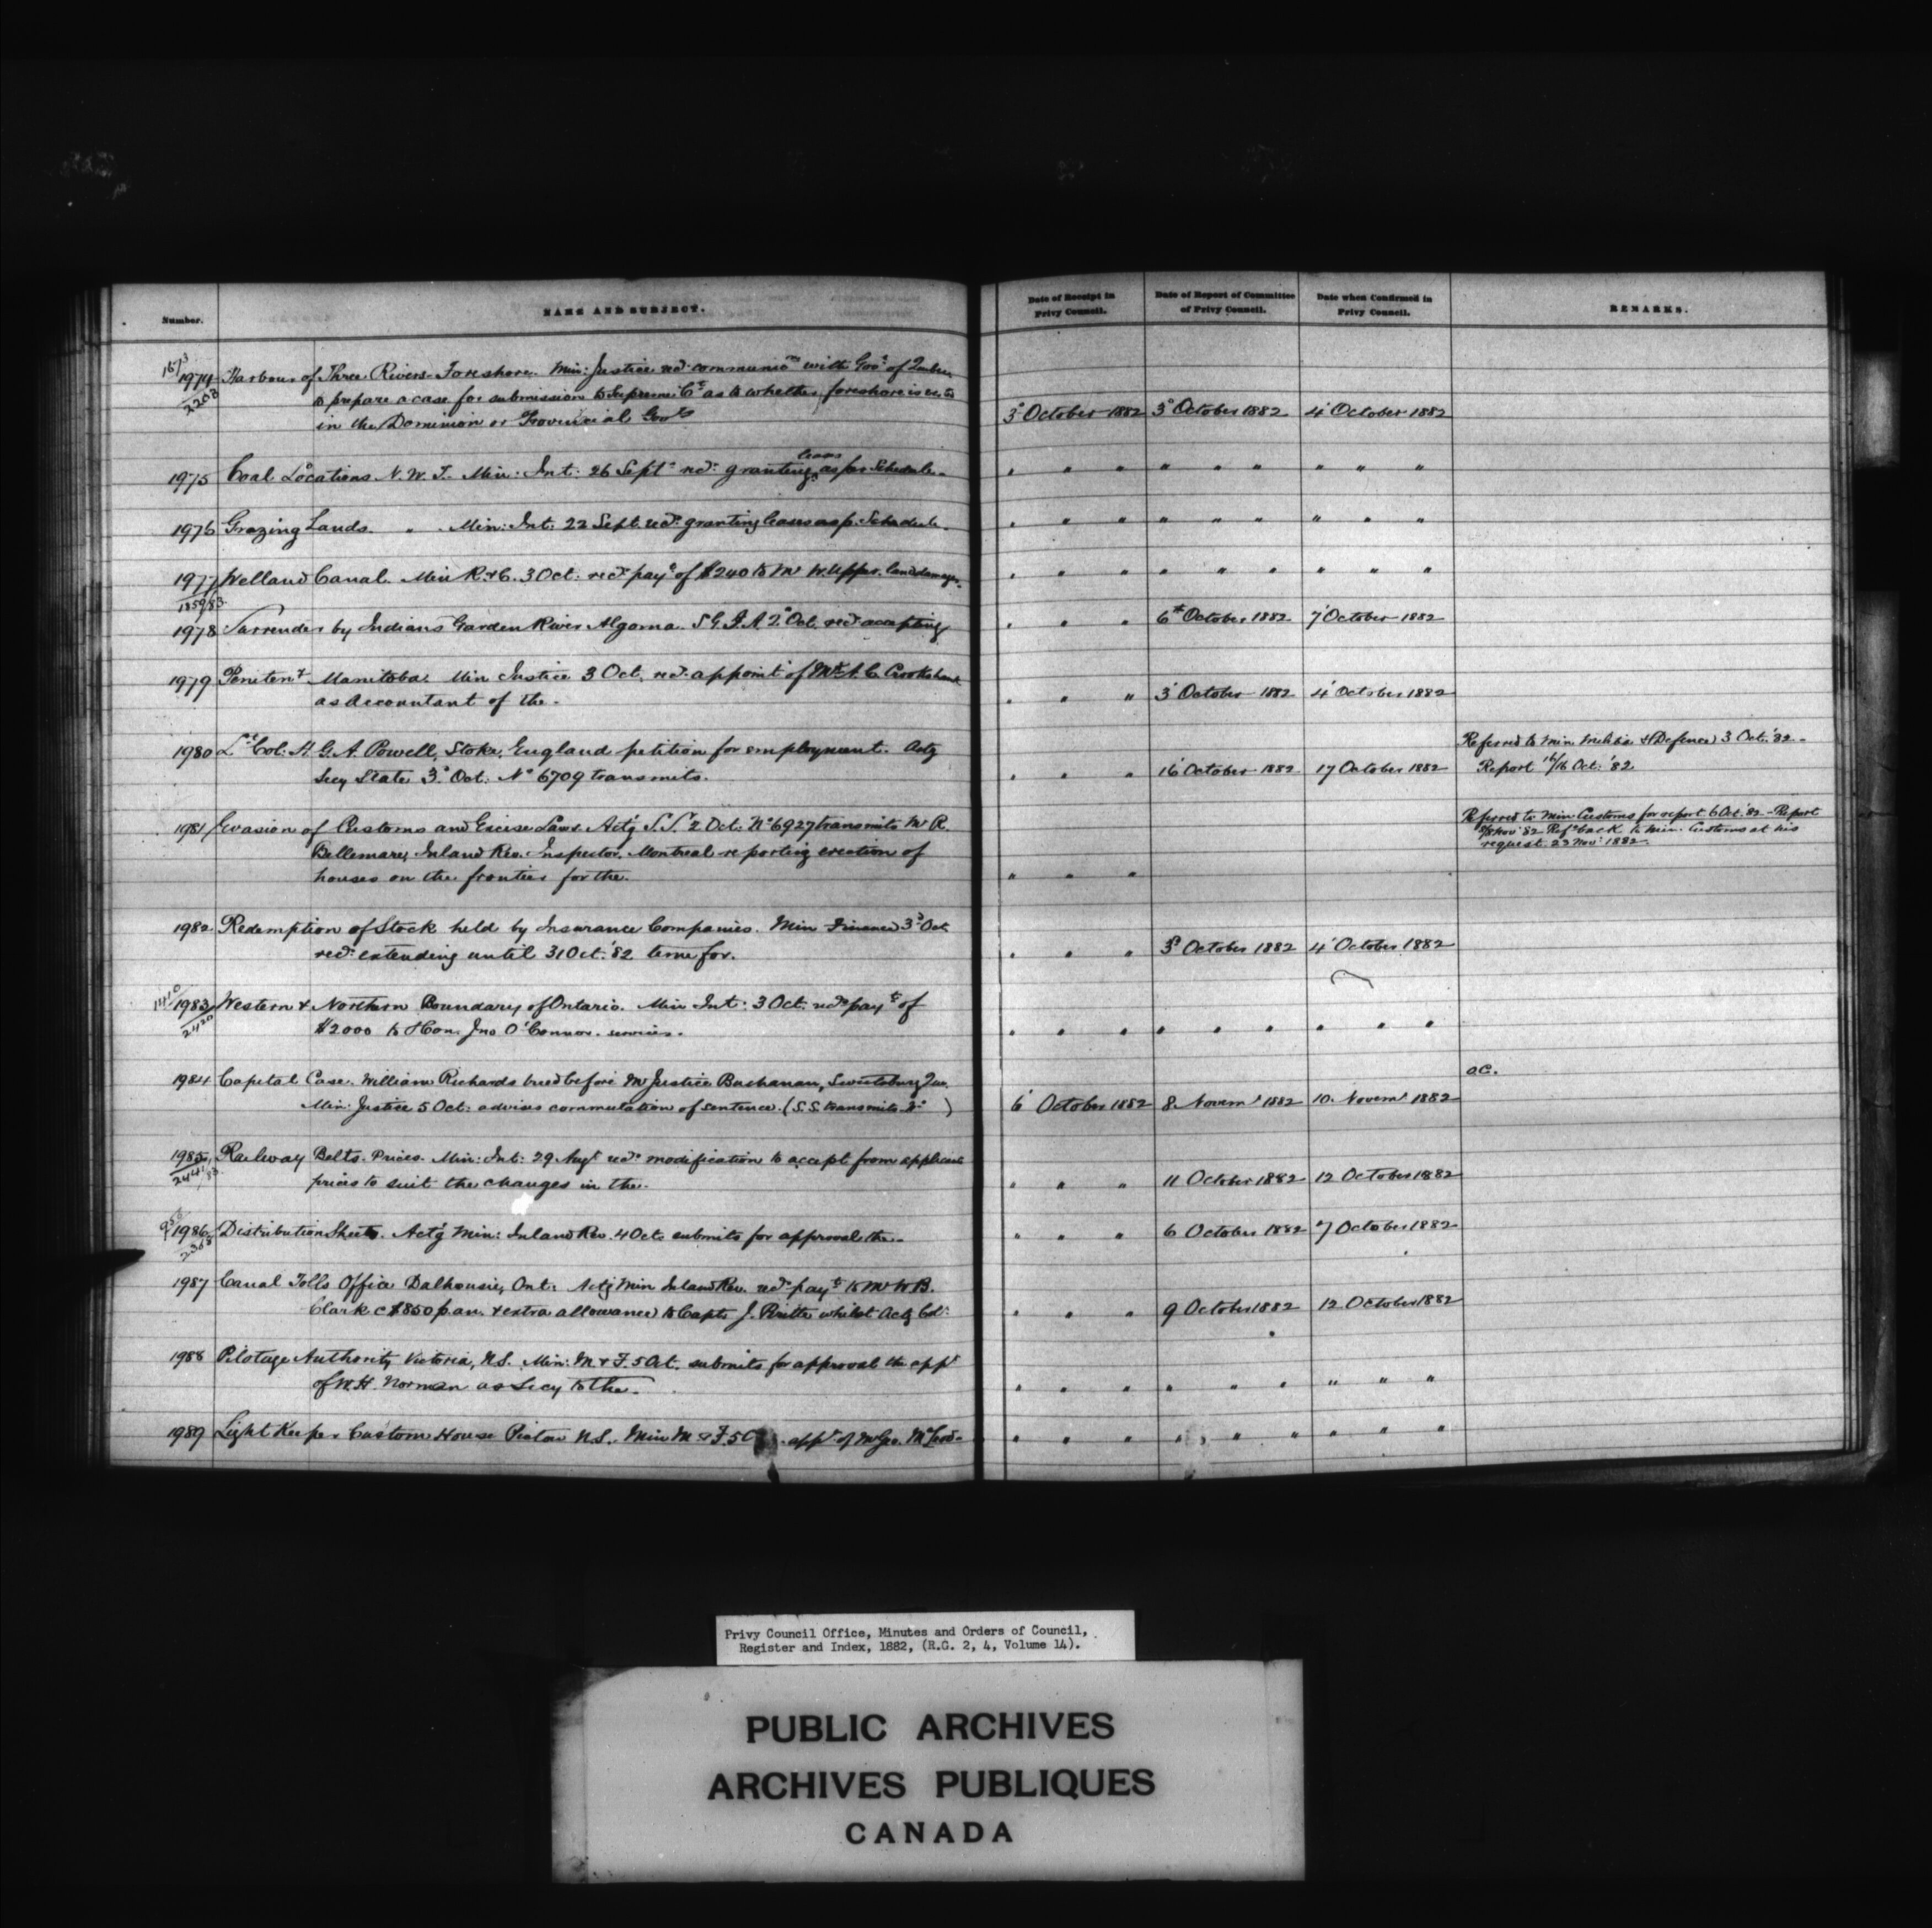 Number.
NAME AND SUBJECT.
Date of Receipt in Privy Council.
Date of Report of Committee of Privy Council.
Date when Confirmed in Privy Council.
REMARKS.
1974 Harbour of Three Rivers Foreshore. Min: Justice recd. communicn with Govt of Quebec
2208
to prepare a case for submission to Supreme Ct as to whether foreshore is
in the Dominion or Provincial Govts
3d October 1882 3d October 1882 4' October 1882
1975 Coal Locations N. W. T. Min: Int: 26 Sept recd. granting leases as per Schedule.
" " " " " " " " "
1976 Grazing Lands " Min: Int: 22 Sept. recd. granting leases as p. Schedule.
" " " " " " " " "
1977 Welland Canal. Min R. & C. 3 Oct: recd. payt of $240 to Mr W. Upper. land damages.
1859/83
" " " " " " " " "
1978 Surrender by Indians Garden River Algoma. S. G. I. A. 2d Oct. recd. accepting
" " " 6th October 1882 7' October 1882
1979 Penitenty Manitoba. Min Justice 3 Oct. recd. appoint of Mr A. C. Crookshank
as Accountant of the.
" " " 3' October 1882 4' October 1882
1980 Lt Col: H. G. A. Powell, Stoke, England petition for employment. Actg
Secy State 3d Oct. No 6709 transmits.
" " " 16' October 1882 17 October 1882
Referred to Min Militia & Defence 3 Oct. '82.
Report 16/16 Oct. '82
1981 Evasion of Customs and Excise Laws. Act'g S. S. 2 Oct. No 6927 transmits Mr R.
Bellemare, Inland Rev. Inspector, Montreal reporting erection of
houses on the frontier for the.
" " "
Referred to Min Customs for report 6 Oct. '82 - Report
Nov '82 Refd back to Min. Customs at his
request 22 Nov' 1882.
1982 Redemption of Stock held by Insurance Companies. Min Finance 3d Oct
recd. extending until 31 Oct. '82 time for.
" " " 3d October 1882 4' October 1882
1410
1983 Western & Northern Boundary of Ontario. Min Int: 3 Oct. recd. payt of
2420
$2000 to Hon. Jno O'Connor. services.
" " " " " " " " "
1984 Capital Case. William Richards tried before Mr Justice Buchanan, Sweetsburg Que.
Min: Justice 5 Oct: advises commutation of sentence. (S. S. transmits )
6' October 1882 8. Novem' 1882 10. Novem' 1882
ac.
1985 Railway Belts. Prices. Min: Int: 29 Augt recd. modification to accept from applicants
2441/83
prices to suit the changes in the.
" " " 11 October 1882 12 October 1882
1986 Distribution Sheets. Act'g Min: Inland Rev. 4 Oct. submits for approval the.
2368
" " " 6 October 1882 7 October 1882
1987 Canal Tolls Office Dalhousie, Ont: Act'g Min Inland Rev. recd. payt to Mr W B.
Clark c $850 p an. & extra allowance to Capt. J. whilst Actg Col:
" " " 9 October 1882 12 October 1882
1988 Pilotage Authority Victoria, N.S. Min: M & F. 5 Oct. submits for approval the appt
of W. H. Norman as Secy to the.
" " " " " " " " "
1989 Light Keeper Custom House Pictou N.S. Min M & F. 5 appt of Mr Geo. McLeod.
" " " " " " " " "
Privy Council Office, Minutes and Orders of Council,
Register and Index, 1882, (R.G. 2, 4, Volume 14).
PUBLIC ARCHIVES
ARCHIVES PUBLIQUES
CANADA